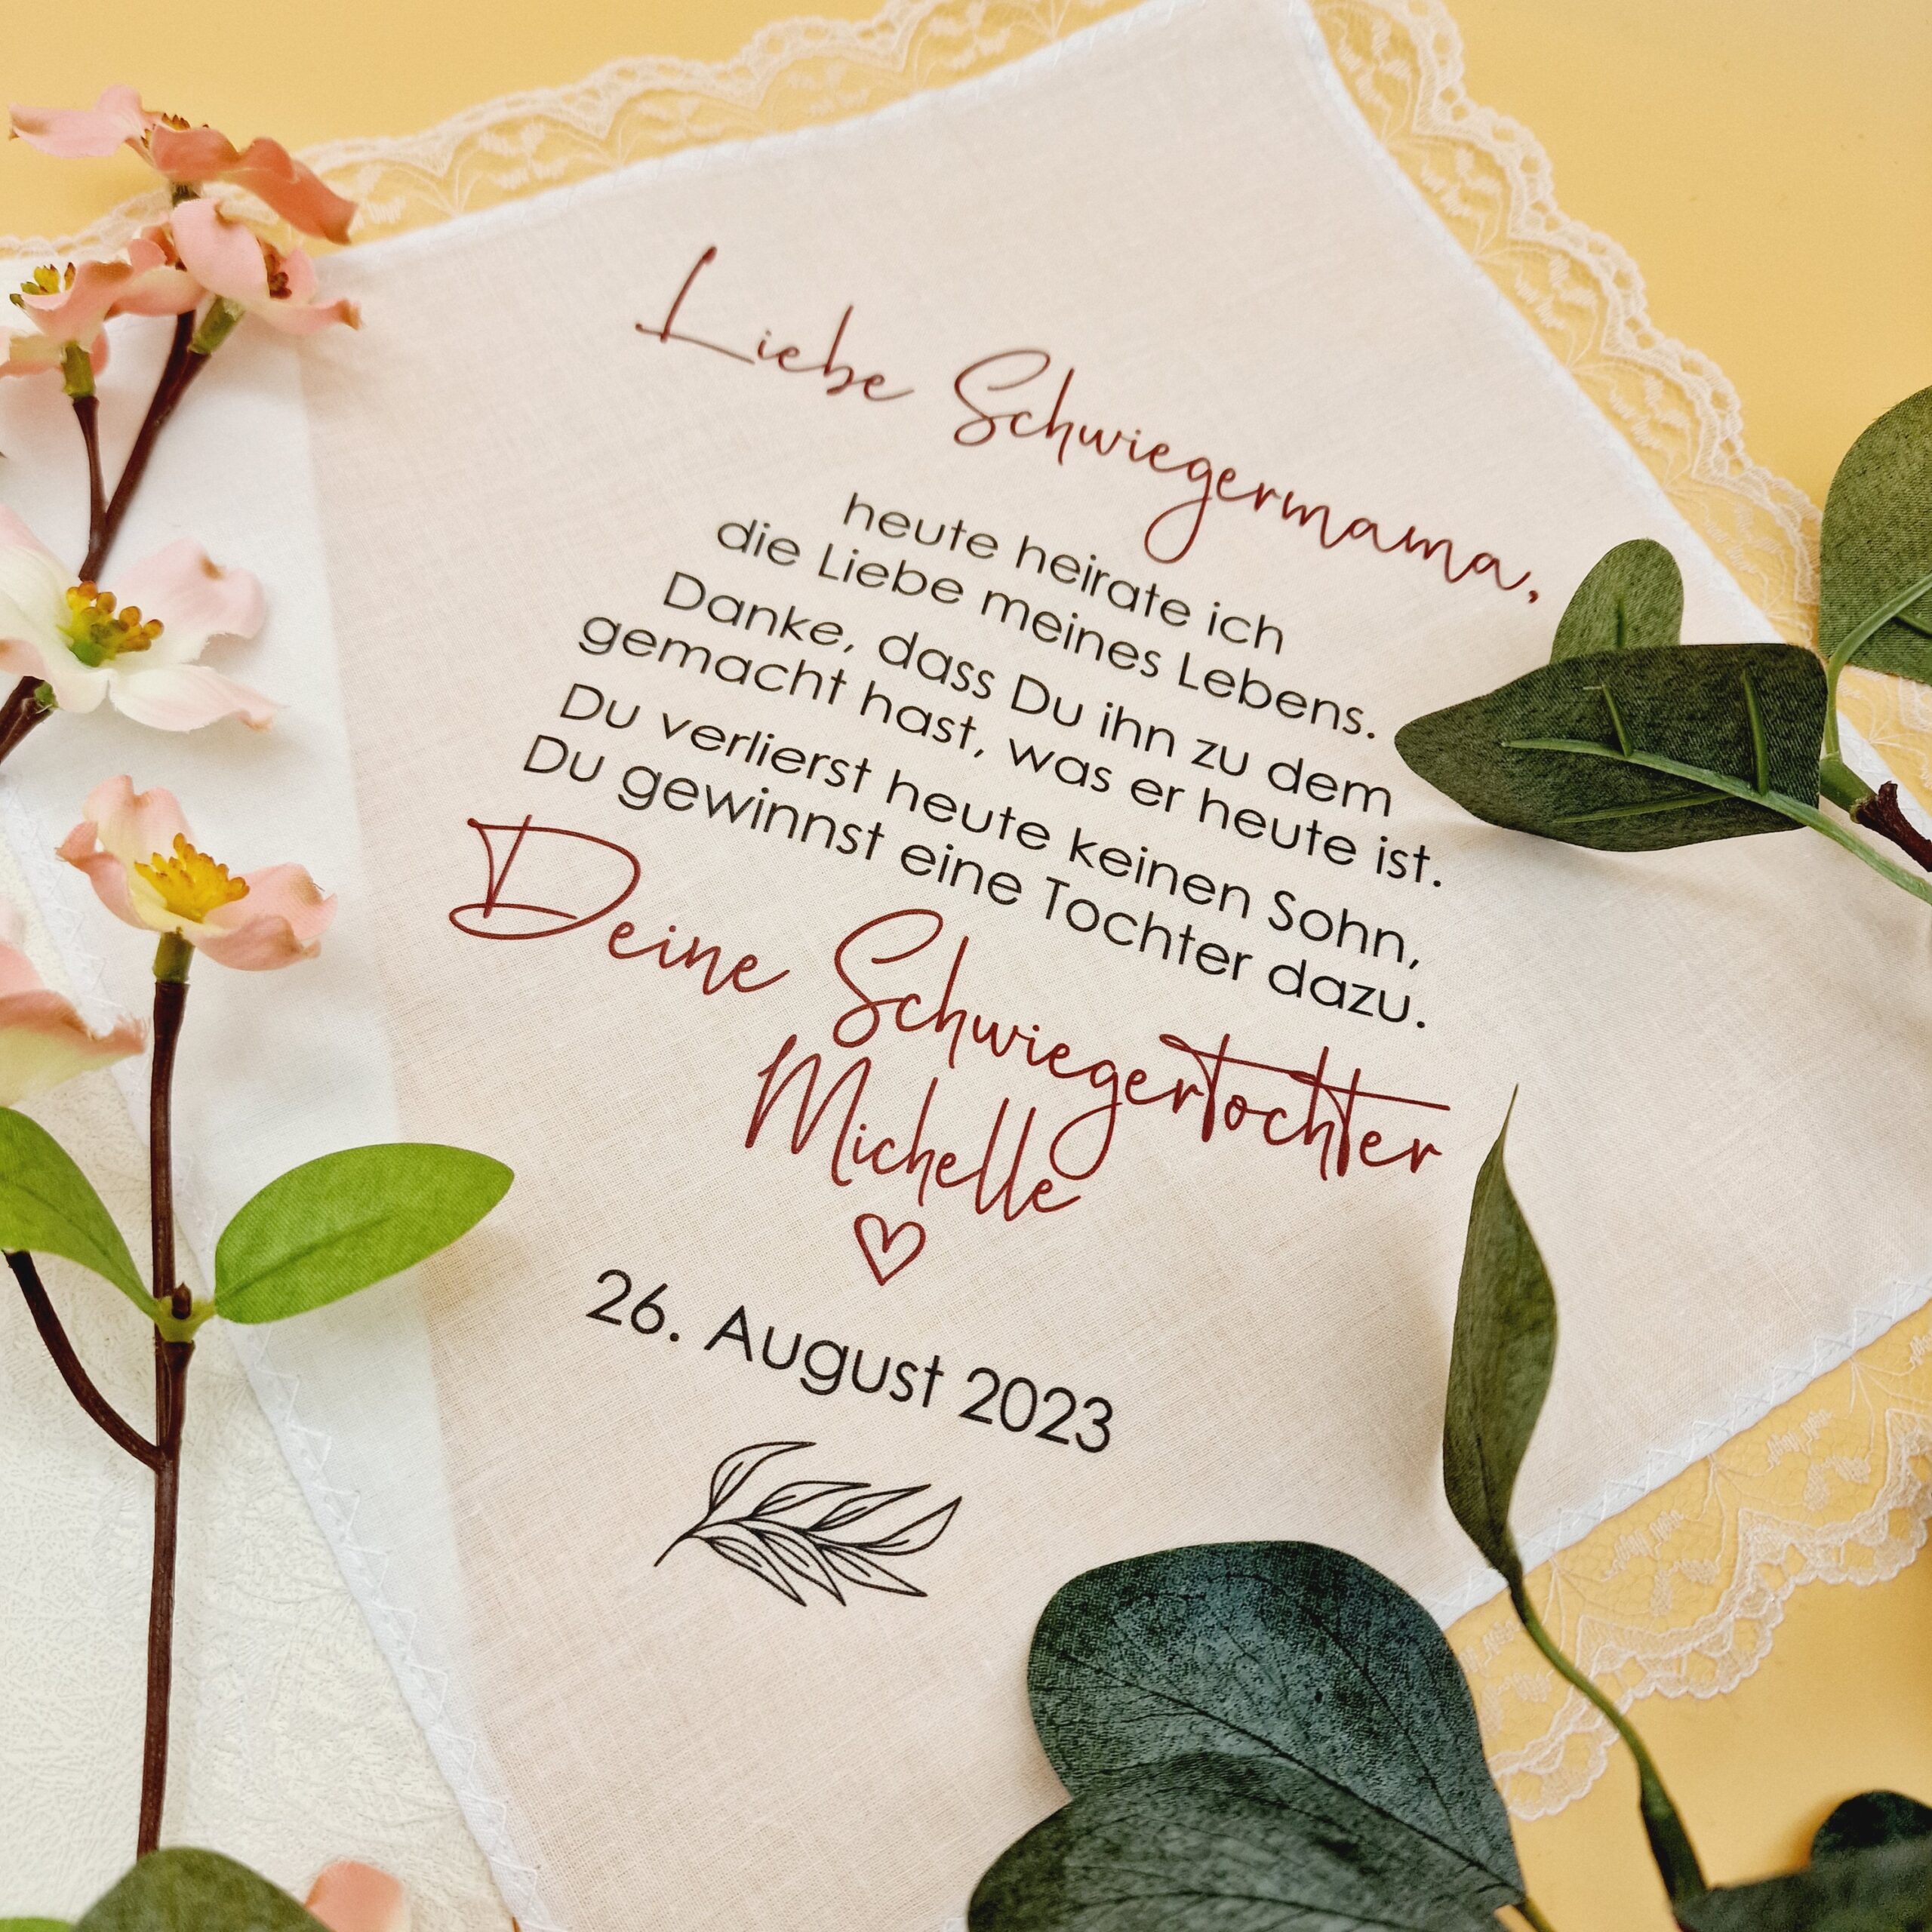 Liebe Schwiegermama,
heute heirate ich
die Liebe meines Lebens.
Danke, dass Du ihn zu dem
gemacht hast, was er heute ist.
Du verlierst heute keinen Sohn,
Du gewinnst eine Tochter dazu.
Deine Schwiegertochter
Michelle
26. August 2023